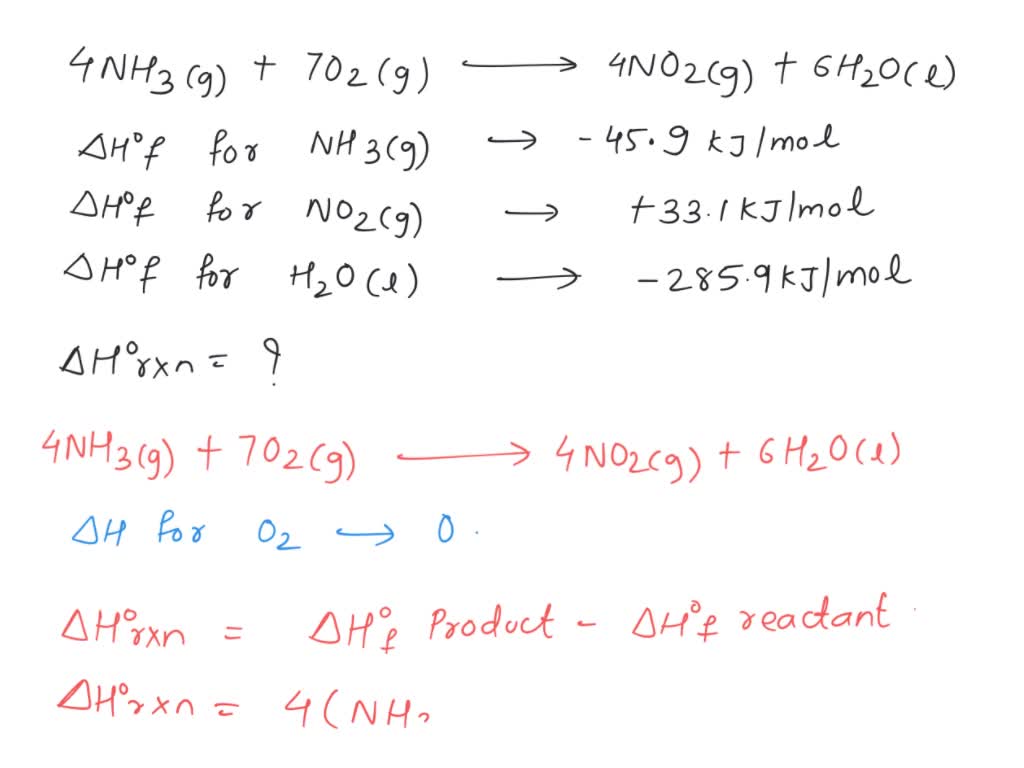 4NH3(g) + 7O2(g) ⟶ 4NO2(g) + 6H2O(l)
ΔH°f for NH3(g) → -45.9 kJ/mol
ΔH°f for NO2(g) → +33.1 kJ/mol
ΔH°f for H2O(l) ⟶ -285.9 kJ/mol
ΔH°rxn = ?
4NH3(g) + 7O2(g) ⟶ 4NO2(g) + 6H2O(l)
ΔH for O2 → 0.
ΔH°rxn = ΔH°f Product - ΔH°f reactant
ΔH°rxn = 4(NH